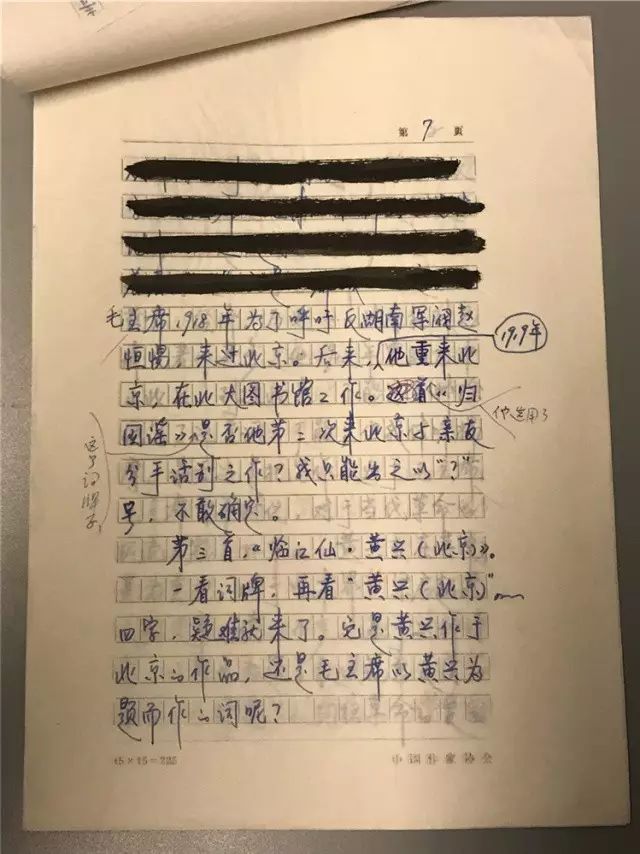 第 7 页
毛主席1918年为了呼吁反湖南军阀赵
恒惕，来过北京。后来，他重来北
1919年
京，在北大图书馆工作。这首《归
他选用了
国谣》是否他第二次来北京与亲友
这个词牌子，
分手话别之作？我只能出之以“？”
号，不敢确定。
第三首，《临江仙·黄兴（北京）》。
一看词牌，再看“黄兴（北京）”
四字，疑难就来了。它是黄兴作于
北京的作品，还是毛主席以黄兴为
题而作的词呢？
15×15=225
中国作家协会